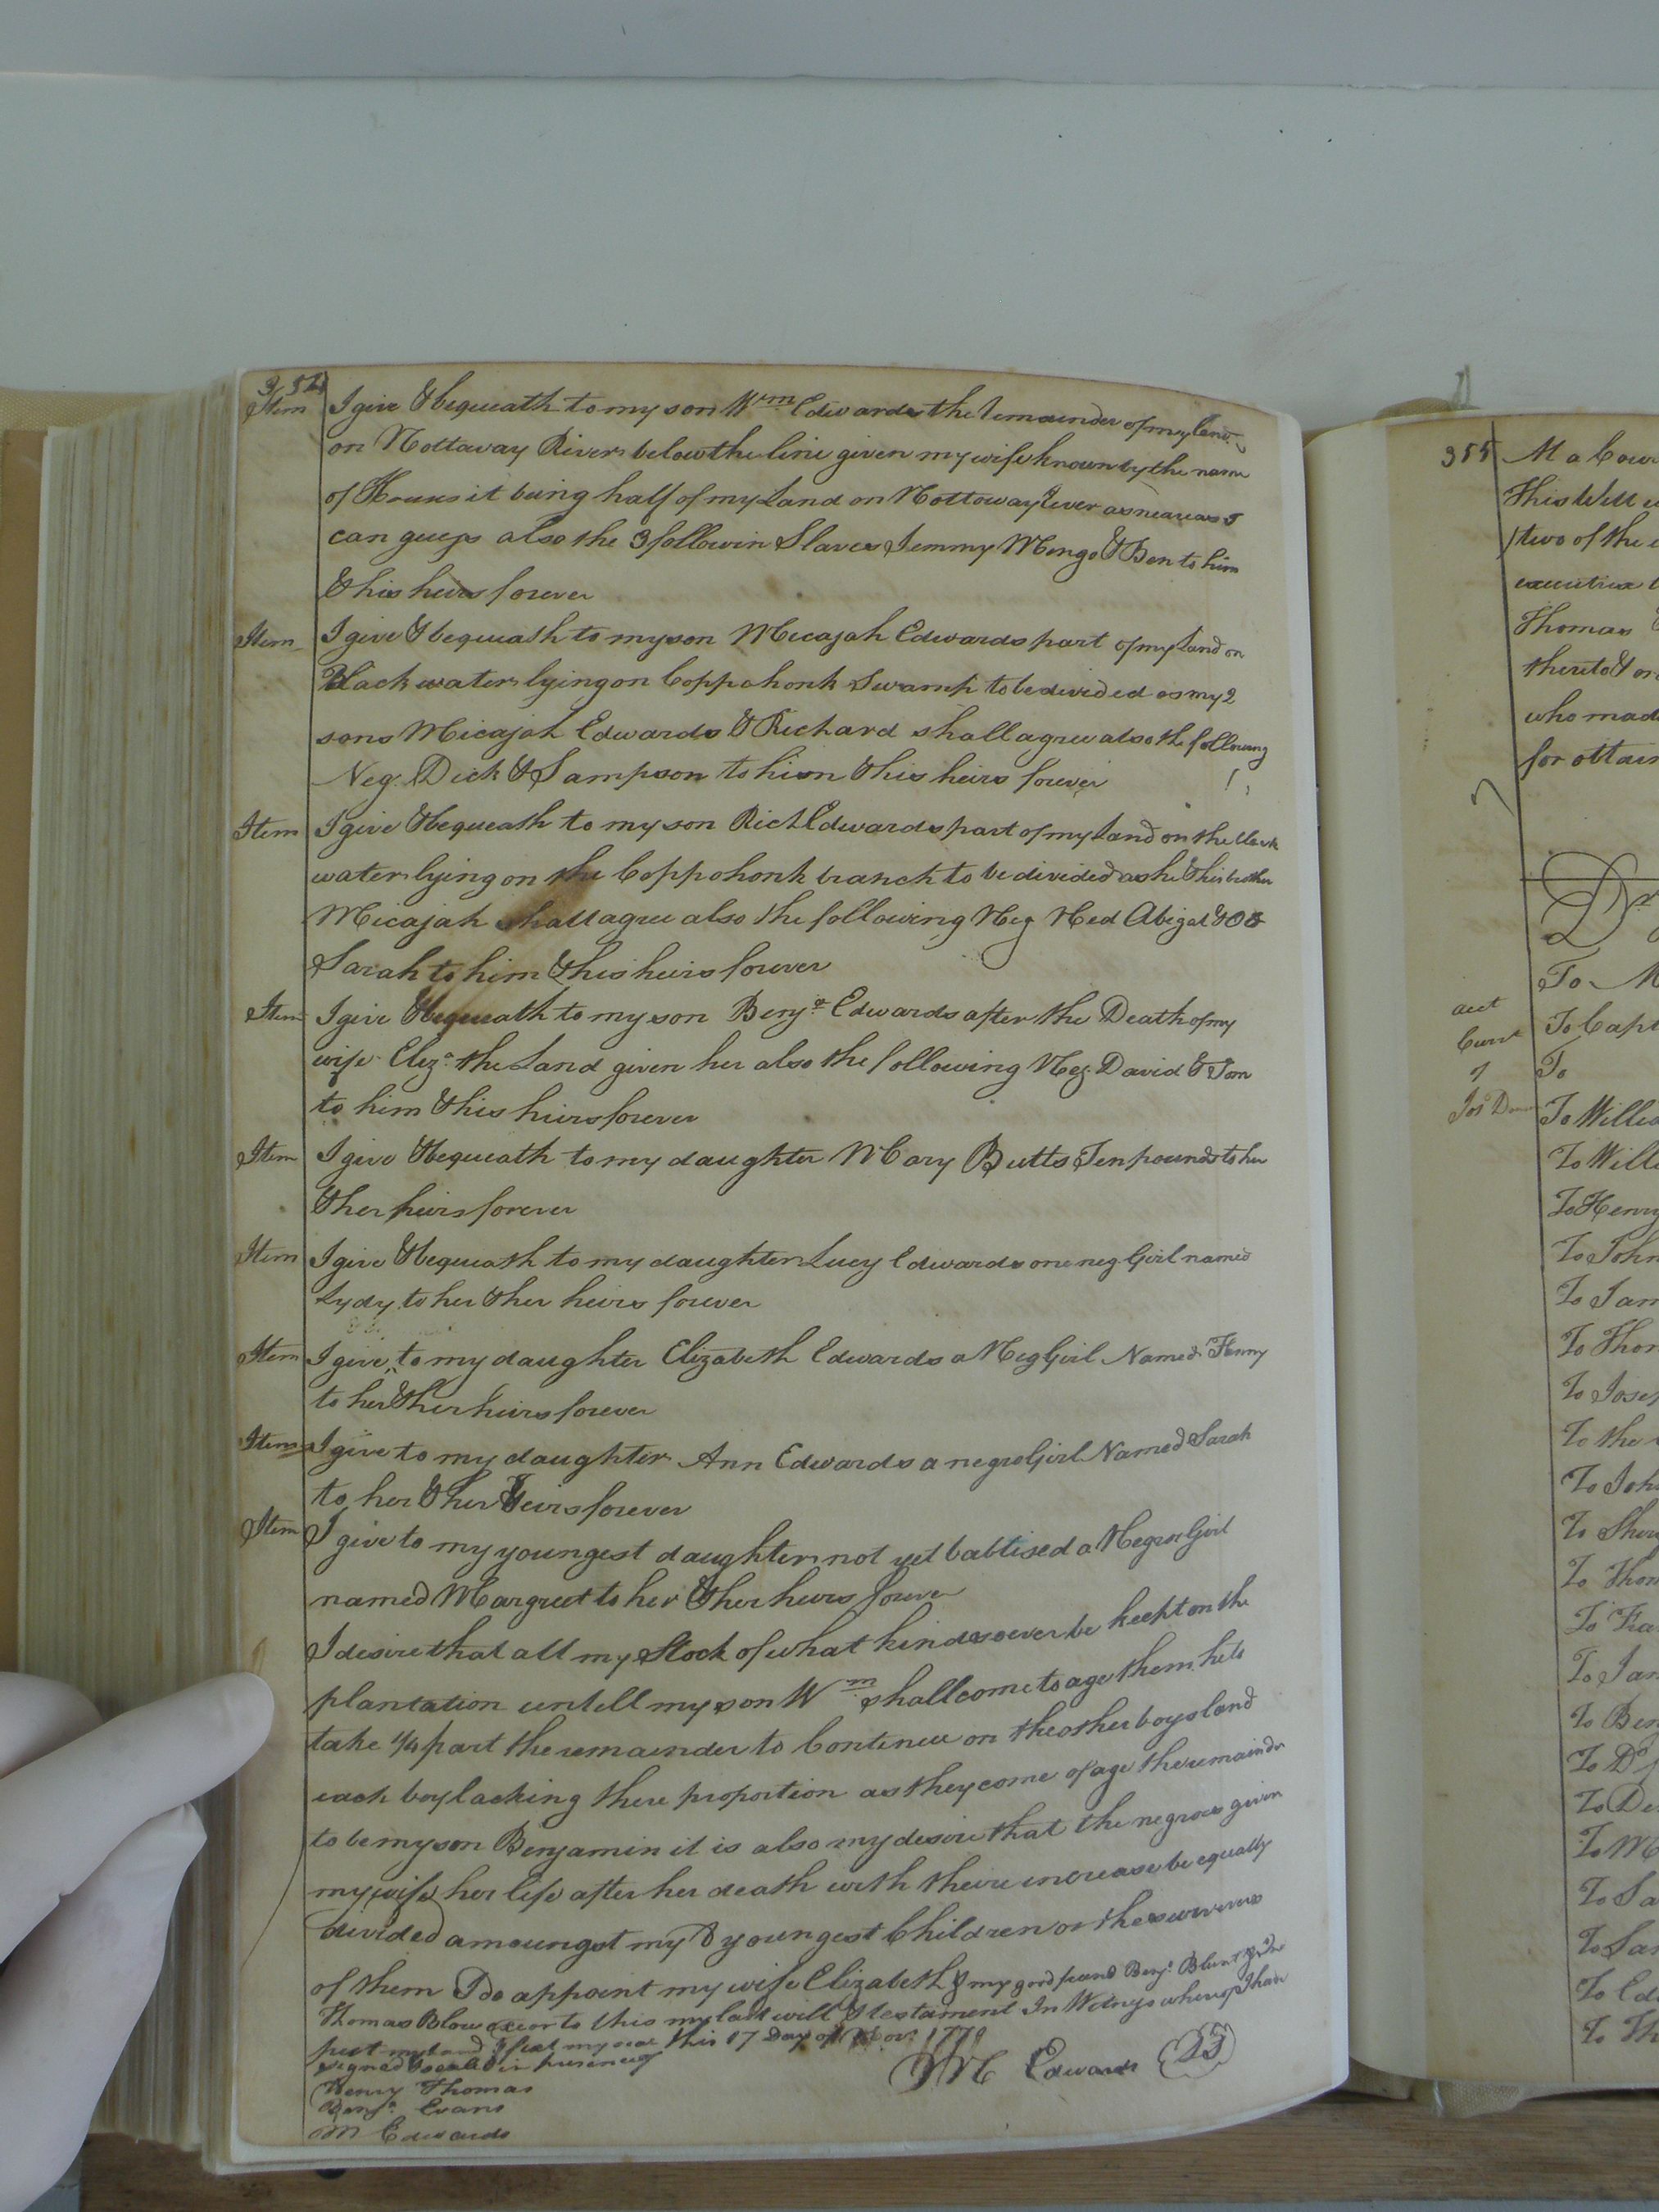 354
Item I give & bequeath to my son Wm Edwards the remainder of my land
on Nottaway River below the line given my wife known by the name
of it being half of my Land on Nottoway River as near as I
can guess also the 3 followin Slaves Jemmy Mingo & Ben to him
& his heirs forever
Item I give & bequeath to my son Micajah Edwards part of my Land on
Black water lying on Coppohonk Swamp to be divided as my 2
sons Micajah Edwards & Richard shall agree also the following
Neg. Dick & Sampson to him & his heirs forever
Item I give & bequeath to my son Rich Edwards part of my Land on the black
water lying on the Coppohonk branch to be divided as he & his brother
Micajah shall agree also the following Neg Ned Abigal &
Sarah to him & his heirs forever
Item I give & bequeath to my son Benja Edwards after the Death of my
wife Eliza the Land given her also the following Neg David & Tom
to him & his heirs forever
Item I give & bequeath to my daughter Mary Butts Ten pounds to her
& her heirs forever
Item I give & bequeath to my daughter Lucy Edwards one neg Girl named
Lydy to her & her heirs forever
Item I give to my daughter Elizabeth Edwards a Neg Girl Named Fanny
to her & her heirs forever
Item I give to my daughter Ann Edwards a negro Girl Named Sarah
to her & her heirs forever
Item I give to my youngest daughter not yet babtised a Negro Girl
named Margreet to her & her heirs forever
I desire that all my Stock of what kindsoever be keept on the
plantation untell my son Wm shall come to age them he to
take 1/4 part the remainder to Contineu on the other boys land
each boy lacking there proportion as they come of age the remainder
to be my son Benjamin it is also my desire that the negroes given
my wife her life after her death with theire increase be equally
divided amoungst my 8 youngest Children or the survivers
of them I do appoint my wife Elizabeth & my good friend Benja Blunt &
Thomas Blow to this my last will & testament In Witness whereof I have
put my hand & my seal this 17 Day of Nov. 1770
signed & sealed in presence of
Wm Edwards
Henry Thomas
Benja Evans
M Edwards
355 At a Cour
This Will
two of the
executrix
Thomas
thereto & or
who made
for
Dr
To M
acct
To Capt
Curt
To
Jos
To Willia
To Will
To Henry
To John
To Jam
To Thom
To Josep
To the
To John
To Sher
To Thom
To Fra
To Jam
To Ben
To
To De
To M
To Sa
To Sa
To Ed
To Th